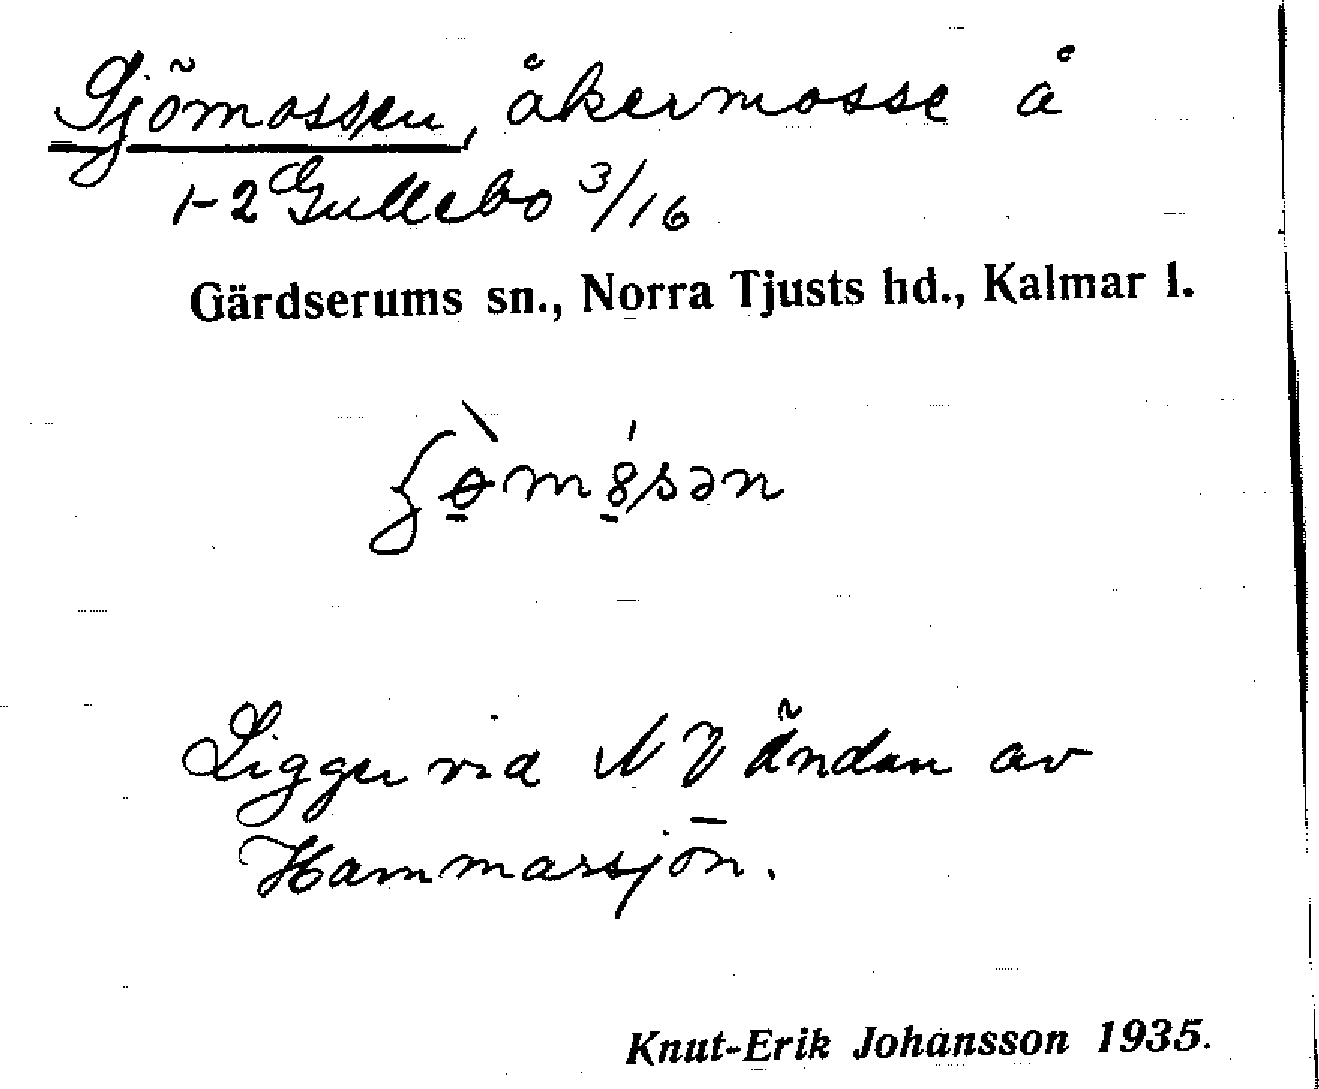 Sjömossen, åkermosse å
1-2 Gullebo 3/16
Gärdserums sn., Norra Tjusts hd., Kalmar l.
Ligger vid NV ändan av
Hammarsjön.
Knut-Erik Johansson 1935.